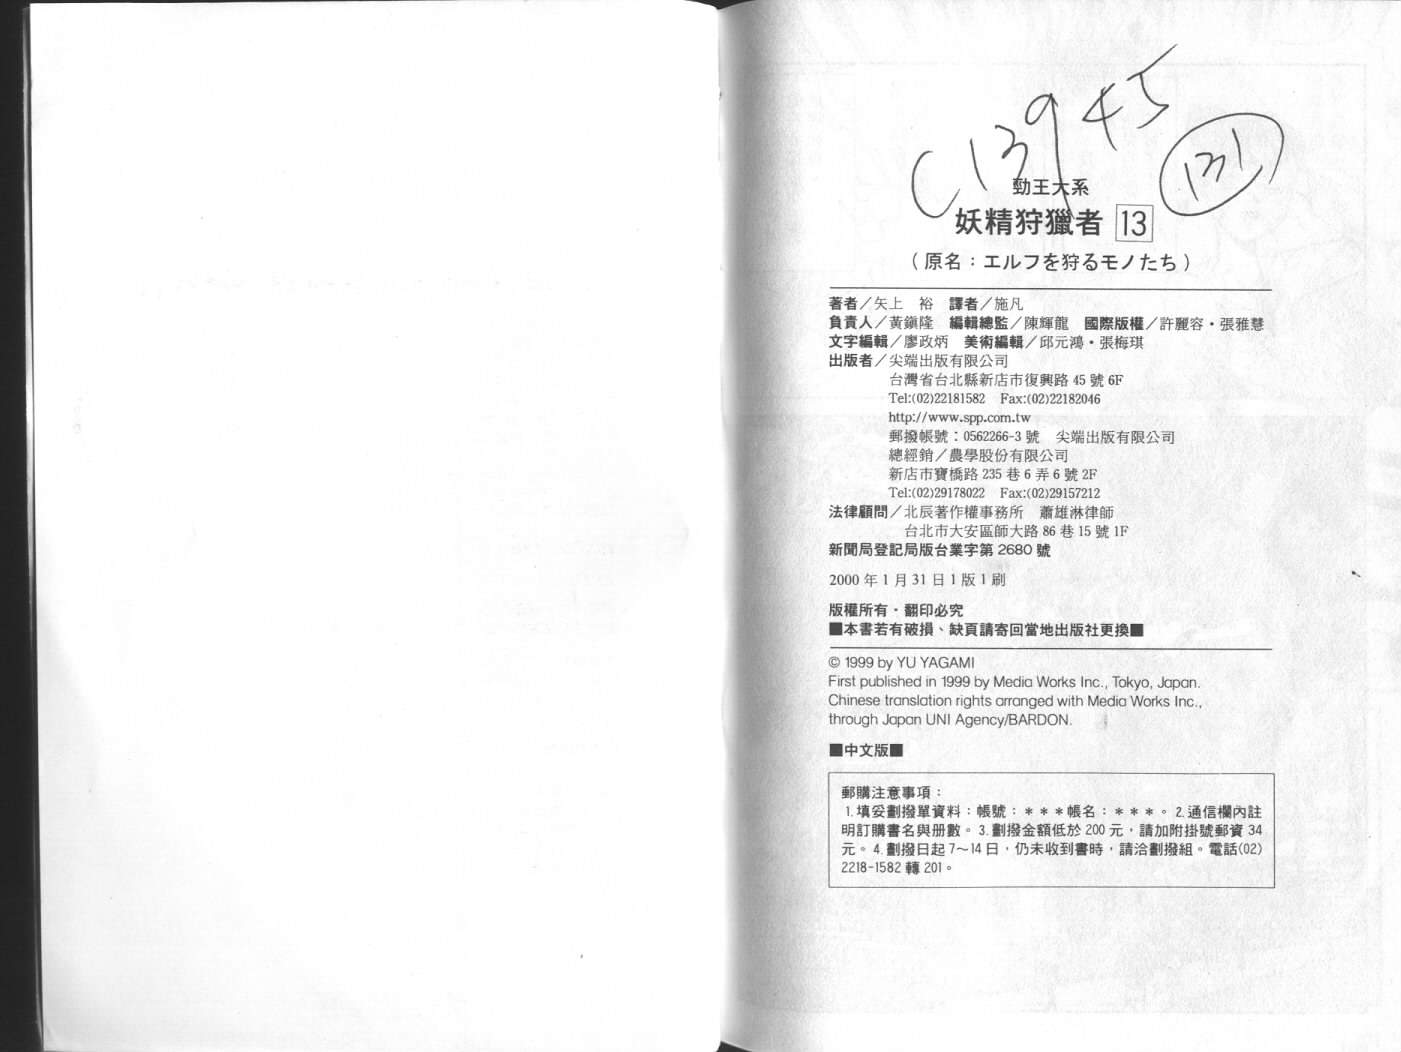 C13945
131
勁王大系
妖精狩獵者 13
（原名：エルフを狩るモノたち）
著者／矢上　裕　譯者／施凡
負責人／黃鎮隆　編輯總監／陳輝龍　國際版權／許麗容・張雅慧
文字編輯／廖政炳　美術編輯／邱元鴻・張梅琪
出版者／尖端出版有限公司
台灣省台北縣新店市復興路 45 號 6F
Tel:(02)22181582　Fax:(02)22182046
http://www.spp.com.tw
郵撥帳號：0562266-3 號　尖端出版有限公司
總經銷／農學股份有限公司
新店市寶橋路 235 巷 6 弄 6 號 2F
Tel:(02)29178022　Fax:(02)29157212
法律顧問／北辰著作權事務所　蕭雄淋律師
台北市大安區師大路 86 巷 15 號 1F
新聞局登記局版台業字第 2680 號
2000 年 1 月 31 日 1 版 1 刷
版權所有・翻印必究
■本書若有破損、缺頁請寄回當地出版社更換■
© 1999 by YU YAGAMI
First published in 1999 by Media Works Inc., Tokyo, Japan.
Chinese translation rights arranged with Media Works Inc.,
through Japan UNI Agency/BARDON.
■中文版■
郵購注意事項：
1.填妥劃撥單資料：帳號：＊＊＊帳名：＊＊＊。2.通信欄內註
明訂購書名與册數。3.劃撥金額低於 200 元，請加附掛號郵資 34
元。4.劃撥日起 7～14 日，仍未收到書時，請洽劃撥組。電話(02)
2218-1582 轉 201。